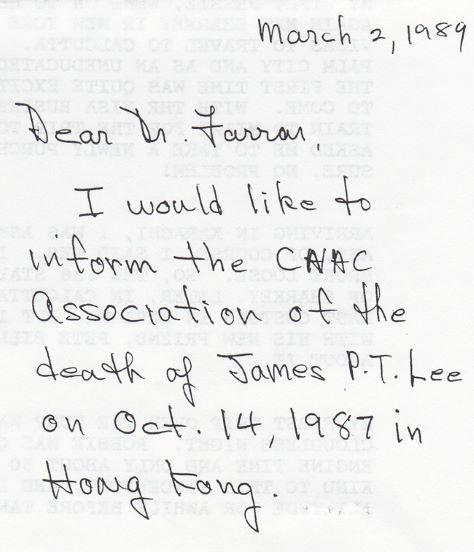 March 2, 1989
Dear Dr Farrar,
I would like to
inform the CNAC
Association of the
death of James P.T. Lee
on Oct. 14, 1987 in
Hong Kong.